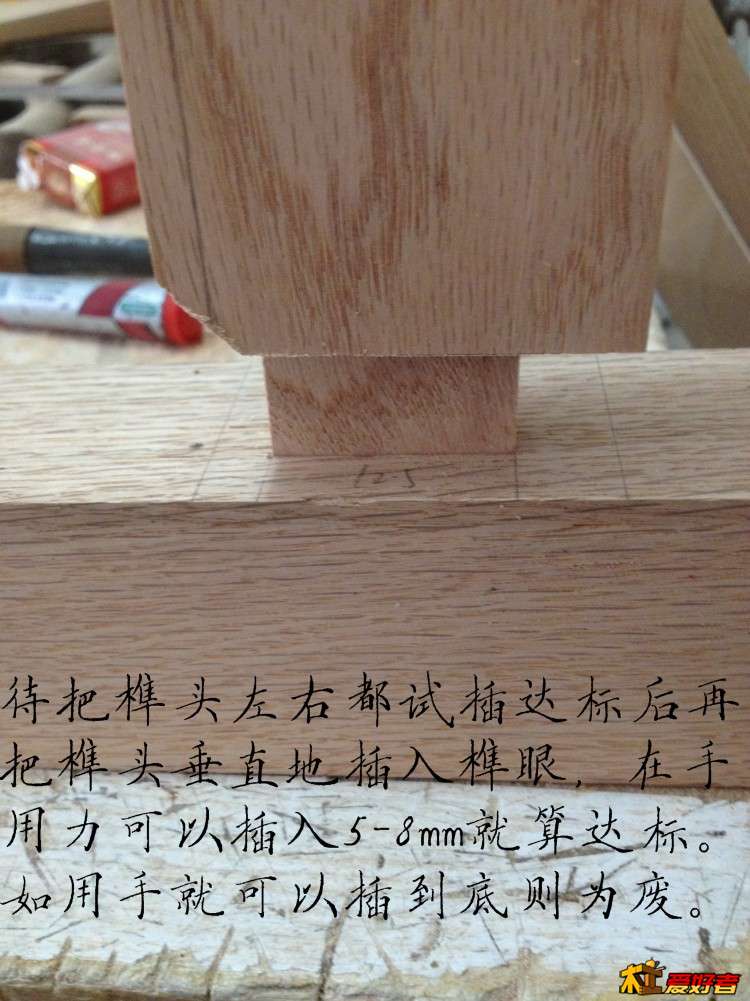 125
待把榫头左右都试插达标后再
把榫头垂直地插入榫眼，在手
用力可以插入5-8mm就算达标。
如用手就可以插到底则为废。
木工爱好者